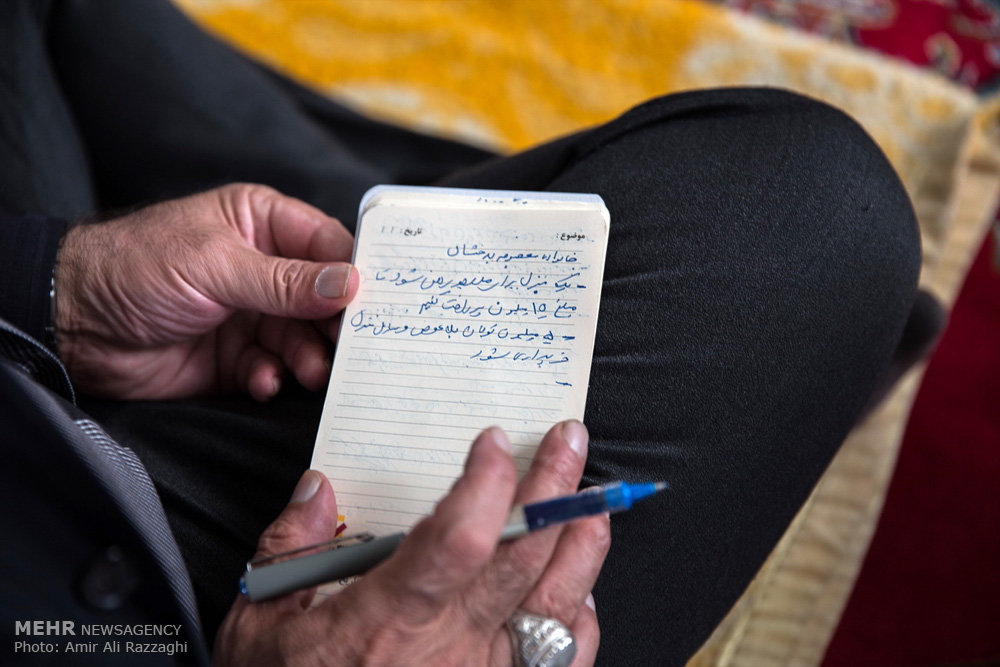 موضوع: تاریخ:
خانواده معصومه بدخشان
- یک منزل برای رهن شود تا
مبلغ ۱۵ میلیون پرداخت کنیم
- ۵ میلیون تومان بلاعوض وسایل منزل
خریداری شود
-
MEHR NEWSAGENCY
Photo: Amir Ali Razzaghi